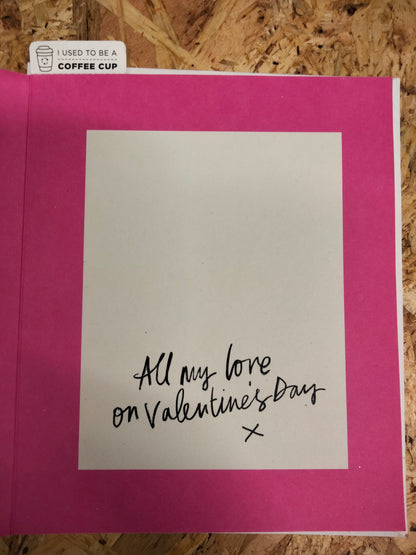 I USED TO BE A
COFFEE CUP
All my love
on Valentine's Day
x